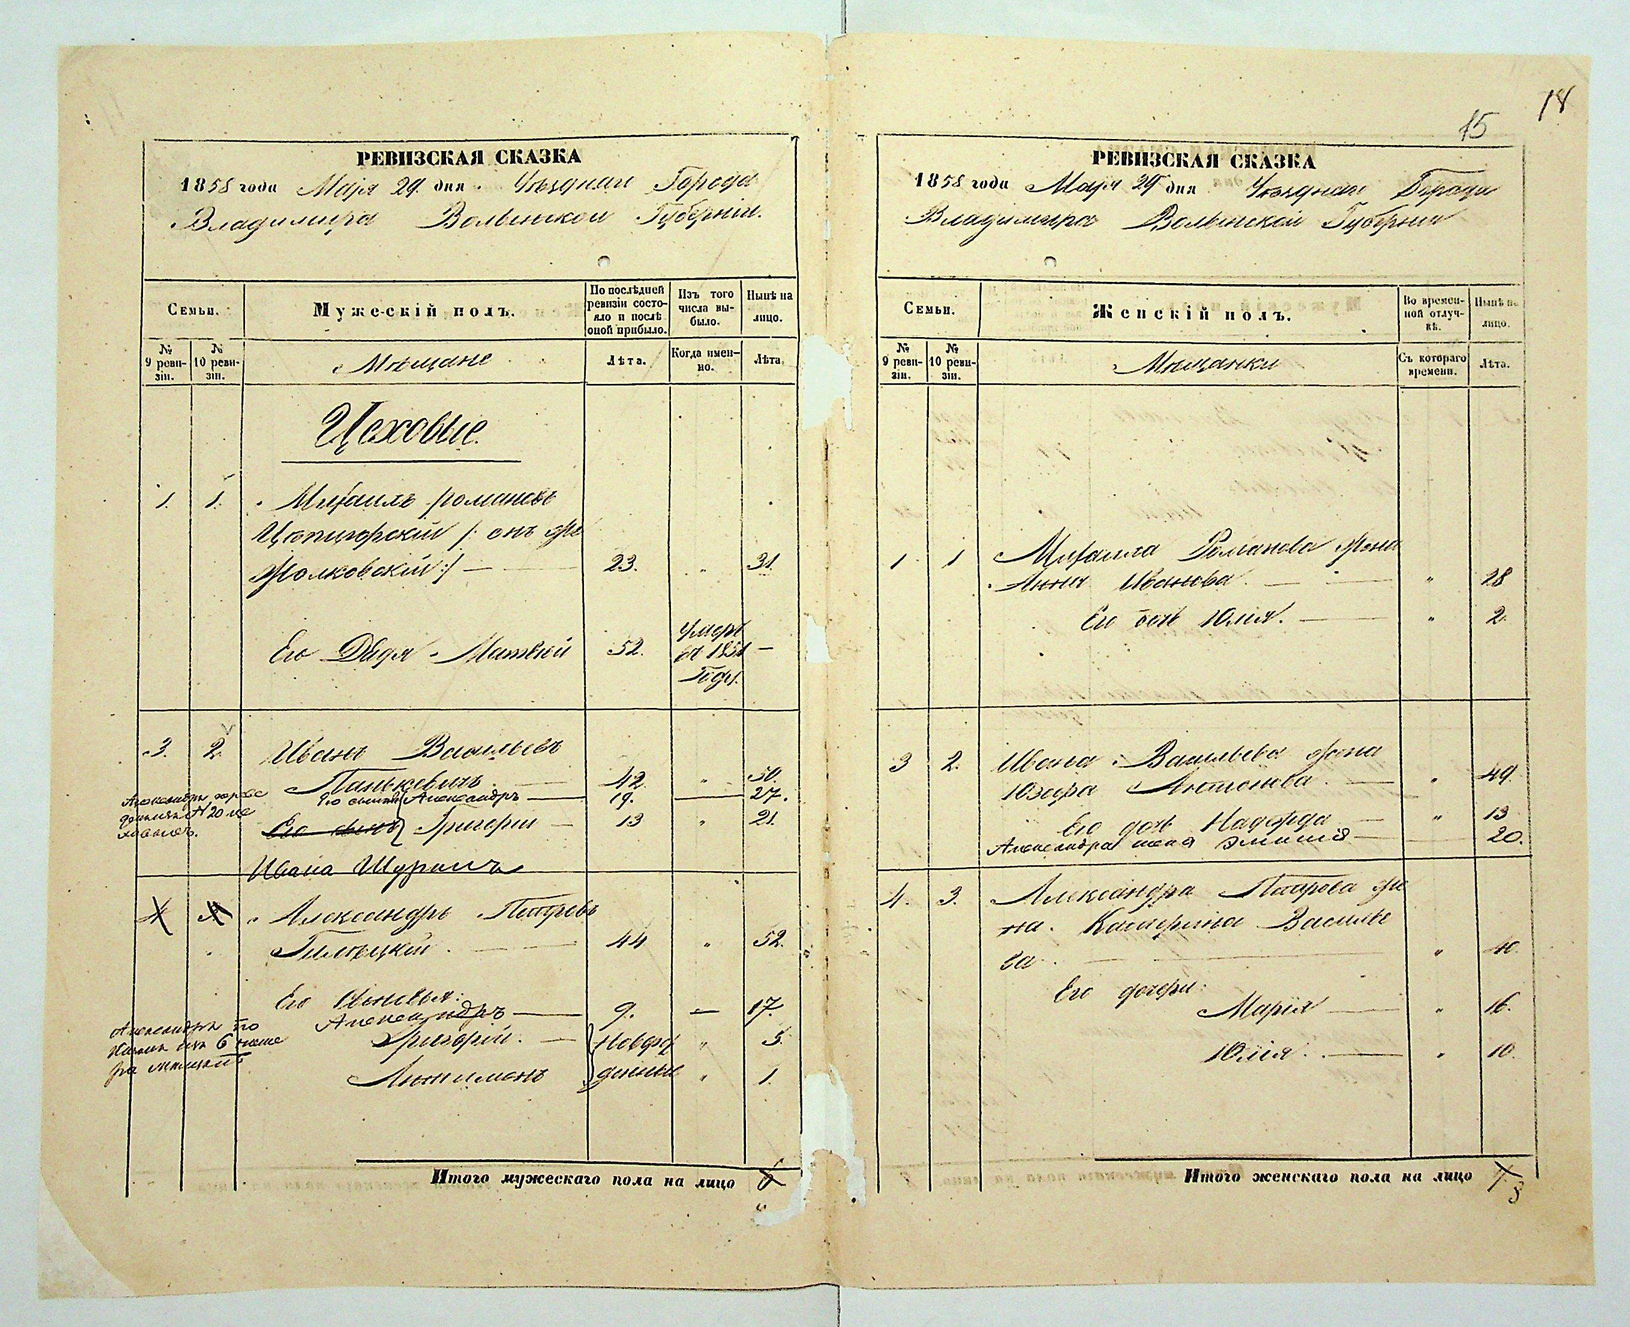 18
15
РЕВИЗСКАЯ СКАЗКА
1858 года Мая 29 дня. Уѣзднаго Города
Владимира Волынской Губерніи.
Семьи.
Мужескій полъ.
По послѣдней ревизіи состояло и послѣ оной прибыло.
Изъ того числа выбыло.
Нынѣ на лицо.
№ 9 ревизіи.
№ 10 ревизіи.
Мѣщане
Лѣта.
Когда именно.
Лѣта.
Цеховые.
1. 1. Михаилъ Романовъ
онъ же
Жолковскій :/ — 23. " 31.
Его Дядя Матвѣй 52. умеръ
въ 185 —
Году.
3. 2. Иванъ Васильевъ
Панькевичъ. — 42. " 50.
Его сынъ Александръ — 19. — 27.
Его сынъ Григорій — 13 " 21.
Ивана
4 Александръ Петровъ
— 44 " 52.
Его сыновья:
Александръ — 9. — 17.
Григорій. — Новоро " 5.
жденные " 1.
Итого мужескаго пола на лицо
РЕВИЗСКАЯ СКАЗКА
1858 года Мая 29 дня Уѣзднаго Города
Владимира Волынской Губерніи
Семьи.
Женскій полъ.
Во временной отлучкѣ.
Нынѣ на лицо.
№ 9 ревизіи.
№ 10 ревизіи.
Мѣщанки
Съ котораго времени.
Лѣта.
1 1 Михаила Романова жена
Анна Иванова. — " 28
Его дочь Юлія. — " 2.
3 2. Ивана Васильева жена
Юзефа Антонова — " 49.
Его дочь Надежда — " 13
Александра жена Эмилія — 20.
4. 3. Александра Петрова же
на Катерина Василье
ва —
Его дочери:
Марія — " 16.
Юлія. — " 10.
Итого женскаго пола на лицо
8